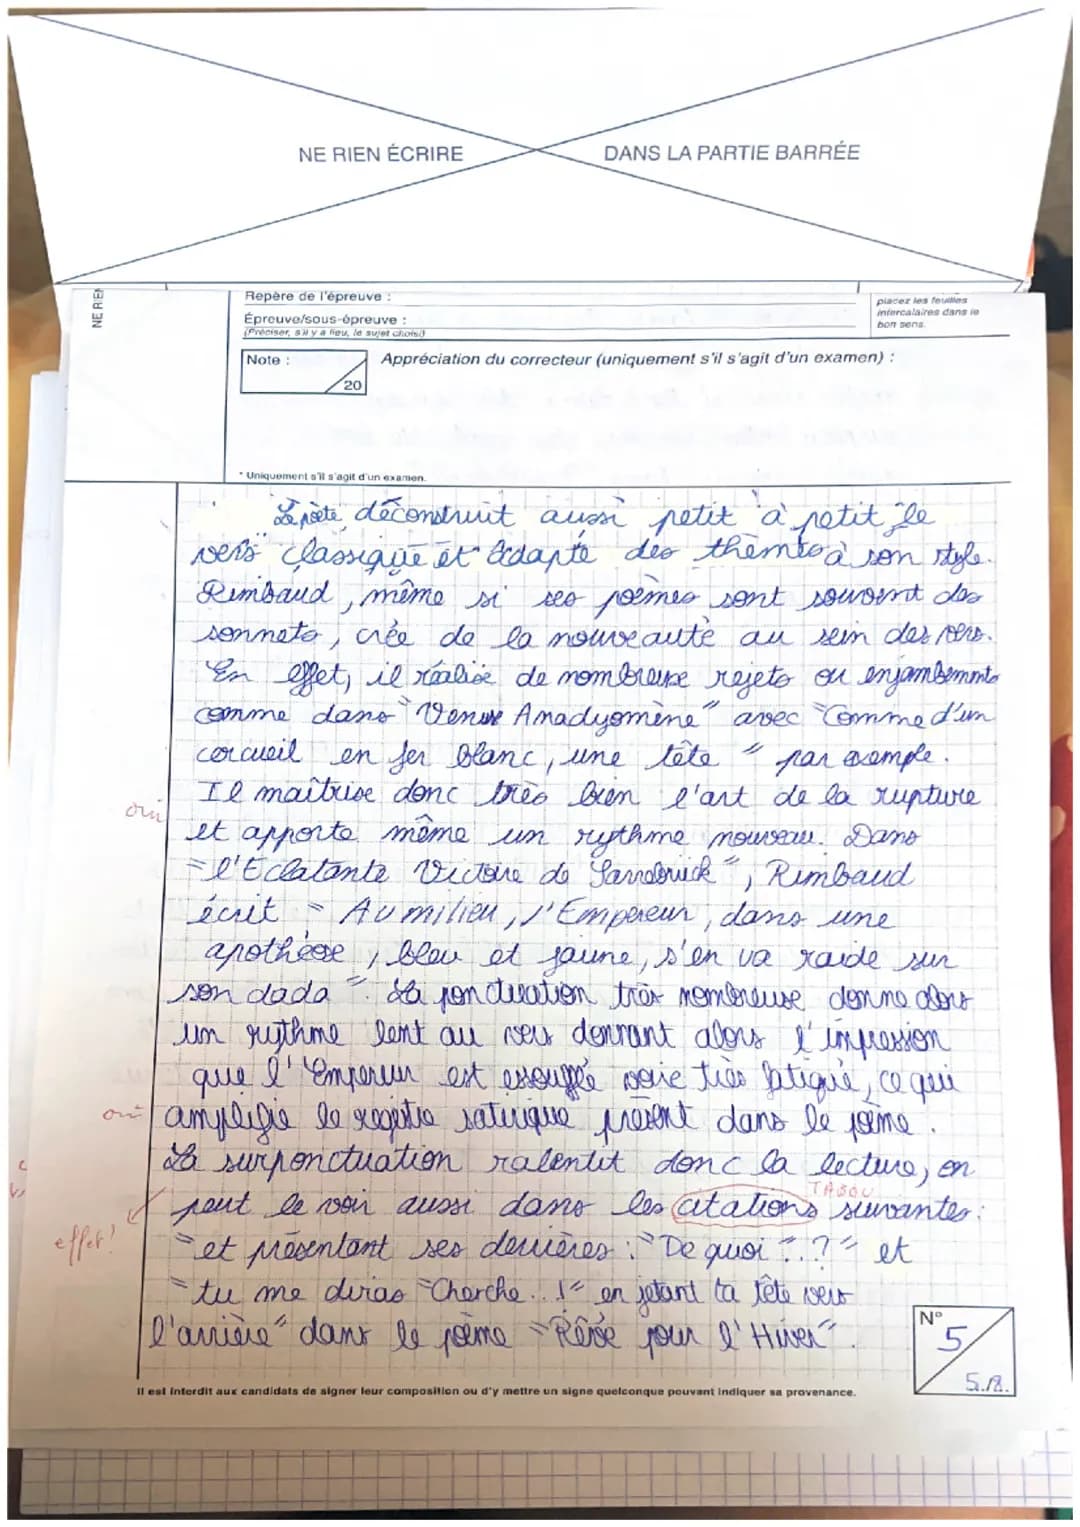 NE RIEN ÉCRIRE
DANS LA PARTIE BARRÉE
NE RIEN
Repère de l'épreuve :
Épreuve/sous-épreuve :
(Préciser, s'il y a lieu, le sujet choisi)
placez les feuilles
intercalaires dans le
bon sens.
Note :
20
Appréciation du correcteur (uniquement s'il s'agit d'un examen) :
* Uniquement s'il s'agit d'un examen.
Le poète déconstruit aussi petit à petit le
vers classique et adapte des thèmes à son style.
Rimbaud, même si ses poèmes sont souvent des
sonnets, crée de la nouveauté au sein des vers.
En effet, il réalise de nombreux rejets ou enjambements
comme dans "Venus Anadyomène" avec "Comme d'un
cercueil en fer blanc, une tête" par exemple.
oui
Il maîtrise donc très bien l'art de la rupture
et apporte même un rythme nouveau. Dans
"l'Eclatante Victoire de Sarrebruck", Rimbaud
écrit "Au milieu, l'Empereur, dans une
apothéose, bleu et jaune, s'en va raide sur
son dada". La ponctuation très nombreuse donne alors
un rythme lent au vers donnant alors l'impression
que l'Empereur est essoufflé voire très fatigué, ce qui
oui
amplifie le registre satirique présent dans le poème.
La surponctuation ralentit donc la lecture, on
TABOU
peut le voir aussi dans les citations suivantes :
effet !
"et présentant ses derrières : "De quoi"..?" et
"tu me diras "Cherche..!" en jetant ta tête vers
l'arrière" dans le poème "Rêvé pour l'Hiver".
N°
5
5.18.
Il est interdit aux candidats de signer leur composition ou d'y mettre un signe quelconque pouvant indiquer sa provenance.